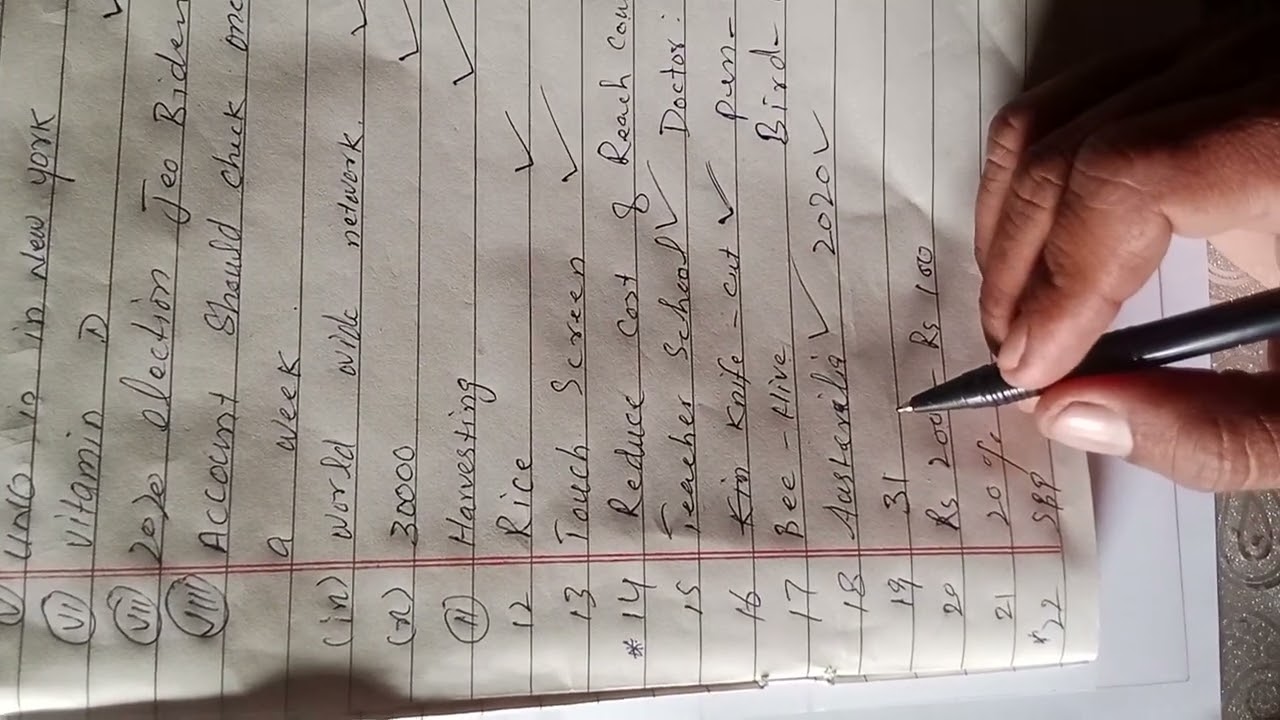 V) UNO is in New York
(VI) Vitamin D
(VII) 2020 election Jeo Biden
(VIII) Account should check one
a week.
(ix) World wide network.
(x) 30000
(11) Harvesting
12 Rice
13 Touch Screen
* 14 Reduce Cost & Reach
15 Teacher School Doctor:
16 Knife - cut pen-
17 Bee - Hive Bird-
18 Australia 2020
19 31
20 Rs 200 - Rs 100
21 20%
*22